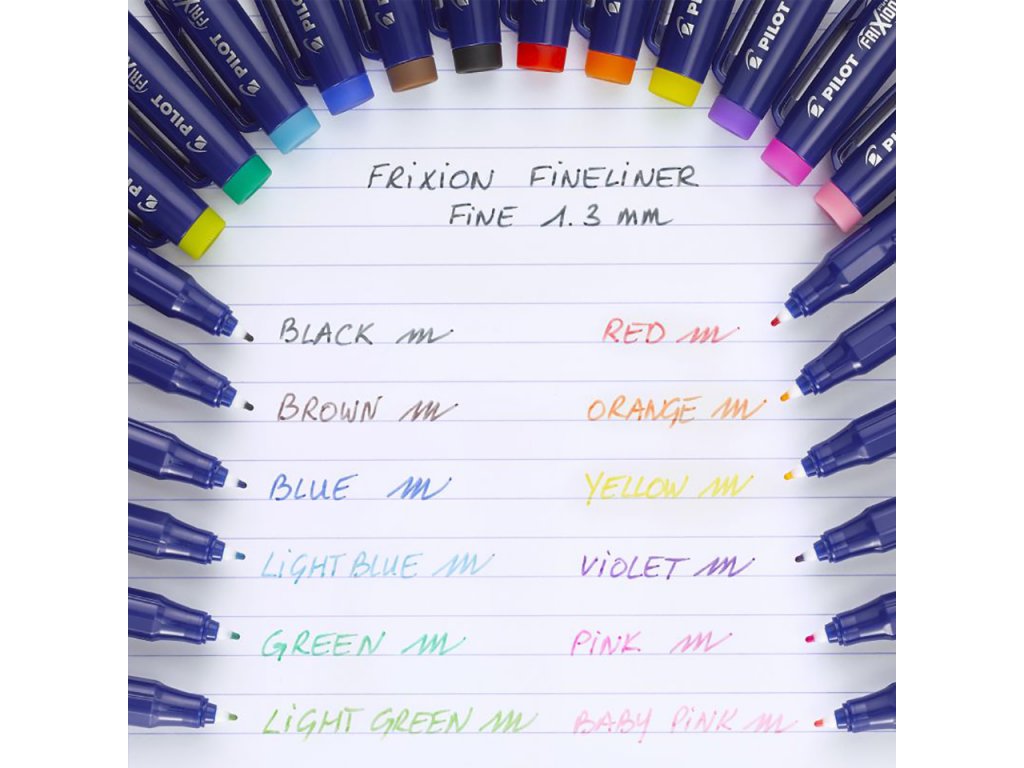 PILOT FRiXION
PILOT FRiXION
PILOT
PILOT
PILOT
PILOT FRiXION
FRiXiON FiNELiNER
FiNE 1.3 mm
BLACK
RED
BROWN
ORANGE
BLUE
YELLOW
LiGHT BLUE
ViOLET
GREEN
PiNK
LiGHT GREEN
BABY PiNK